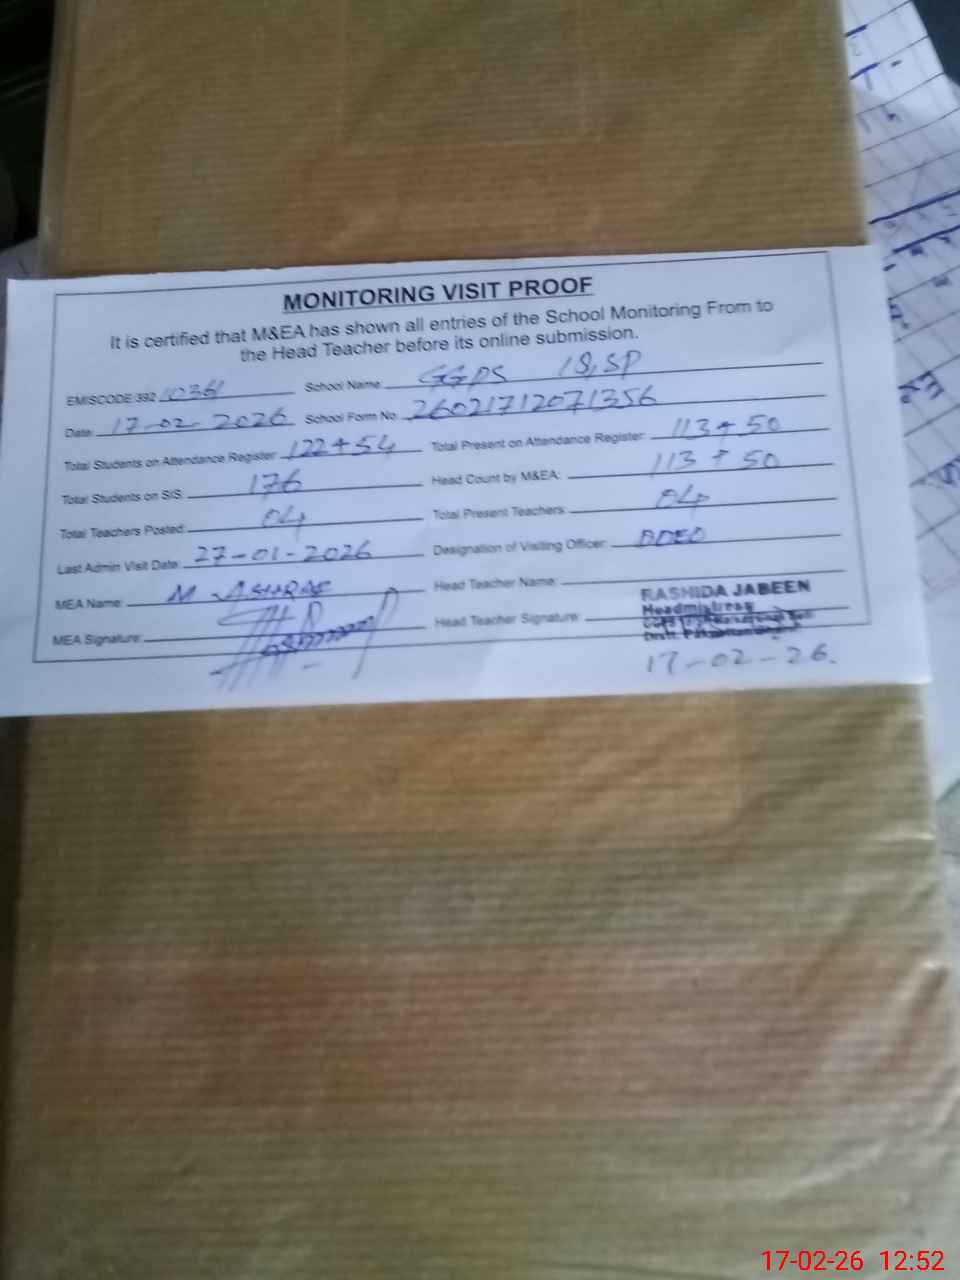 MONITORING VISIT PROOF
It is certified that M&EA has shown all entries of the School Monitoring From to
the Head Teacher before its online submission.
EMISCODE 392 10361 School Name: GGPS 18, SP
Date: 17-02-2026 School Form No: 26021712071356
Total Students on Attendance Register: 122+54 Total Present on Attendance Register: 113+50
Total Students on SIS: 176 Head Count by M&EA: 113+50
Total Teachers Posted: 04 Total Present Teachers: 04
Last Admin Visit Date: 27-01-2026 Designation of Visiting Officer: DDEO
MEA Name: M ASHRAF Head Teacher Name:
RASHIDA JABEEN
Headmistress
MEA Signature: Head Teacher Signature:
17-02-26.
17-02-26 12:52